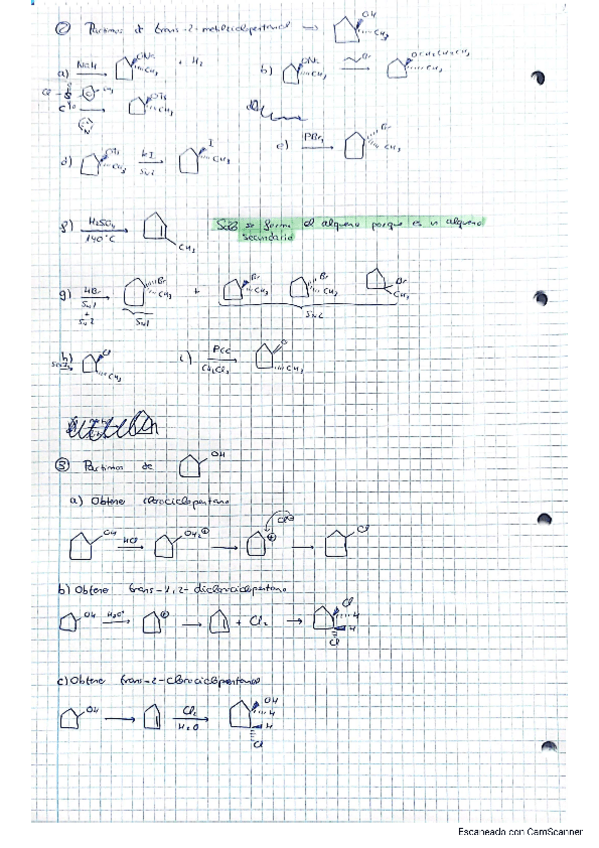 ② Partimos de trans-2-metilciclopentanol → OH CH₃
a) NaH ONa CH₃ + H₂ b) ONa CH₃ Br OCH₂CH₂CH₃ CH₃
CH₃ OTs CH₃
d) OTs CH₃ KI SN2 I CH₃ e) PBr₃ Br CH₃
f) H₂SO₄ 140°C CH₃ Solo se forma el alqueno porque es un alqueno
secundario
g) HBr SN1 + SN2 Br CH₃ SN1 + Br CH₃ Br CH₃ Br CH₃ SN2
h) Cl CH₃ i) PCC CH₂Cl₂ O CH₃
③ Partimos de OH
a) Obtene clorociclopentano
OH HCl → OH₂⊕ → ⊕ → Cl
b) Obtene trans-1,2-diclorociclopentano
OH H₃O⁺ → ⊕ → + Cl₂ → Cl H H Cl
c) Obtene trans-2-clorociclopentanol
OH → Cl₂ H₂O → OH H H Cl
Escaneado con CamScanner